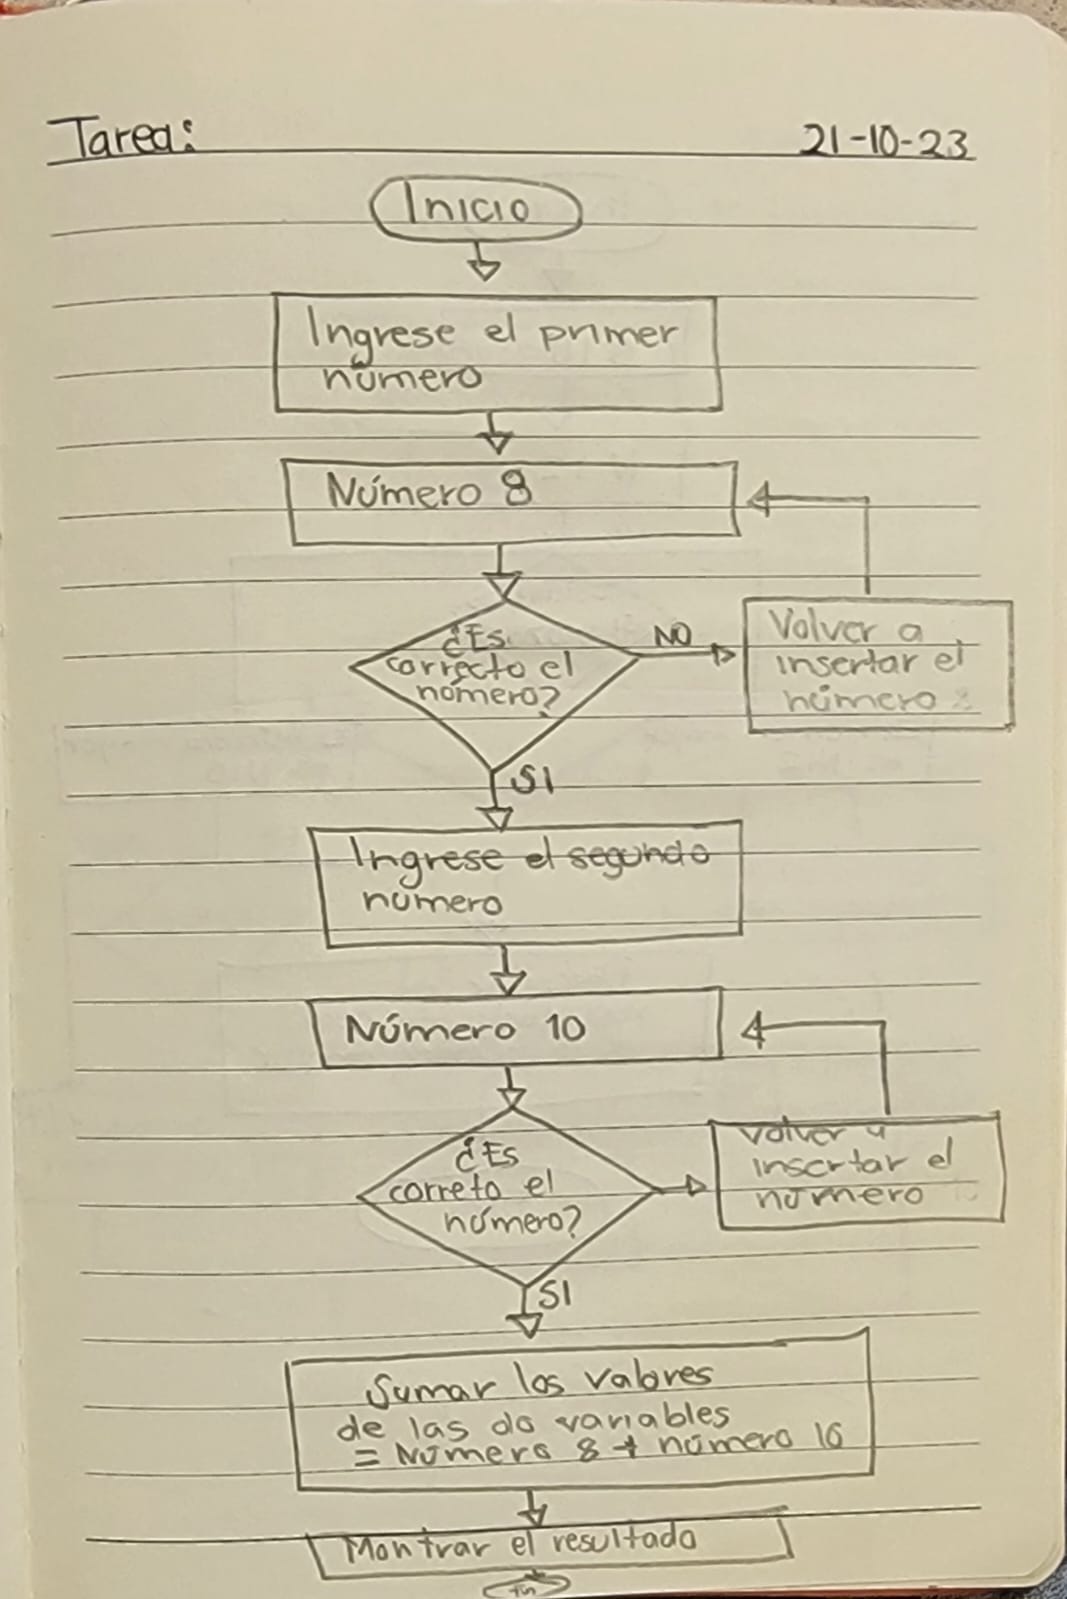 Tarea: 21-10-23
Inicio
Ingrese el primer
número
Número 8
¿Es
correcto el
número?
NO
Volver a
insertar el
número
SI
Ingrese el segundo
número
Número 10
¿Es
correto el
número?
Volver a
insertar el
número
SI
Sumar los valores
de las do variables
= Número 8 + número 10
Montrar el resultado
fin